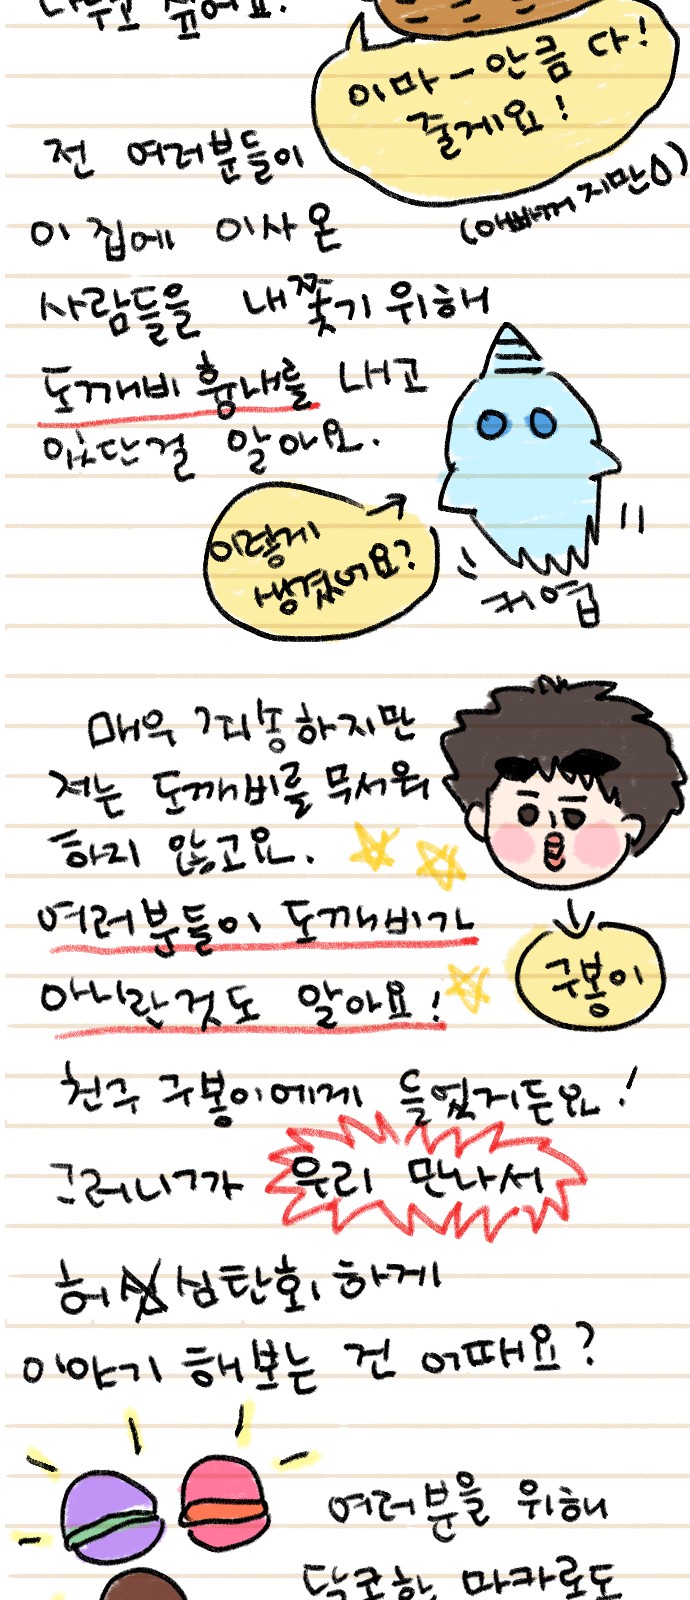 나누고 싶어요.
이마-안큼 다!
줄게요!
(아빠꺼지만)
전 여러분들이
이 집에 이사 온
사람들을 내쫓기 위해
도깨비 흉내를 내고
있단걸 알아요.
이렇게
생겼어요?
귀엽
매우 죄송하지만
저는 도깨비를 무서워
하지 않고요.
여러분들이 도깨비가
아니란 것도 알아요!
구봉이
친구 구봉이에게 들었거든요!
그러니까 우리 만나서
허심탄회하게
이야기 해보는 건 어때요?
여러분을 위해
달콤한 마카롱도